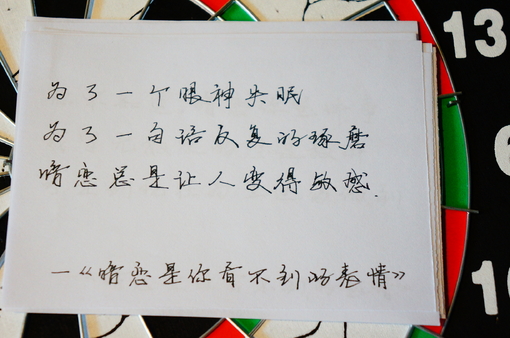 为了一个眼神失眠
为了一句话反复的琢磨
暗恋总是让人变得敏感.
—《暗恋是你看不到的表情》
13
6